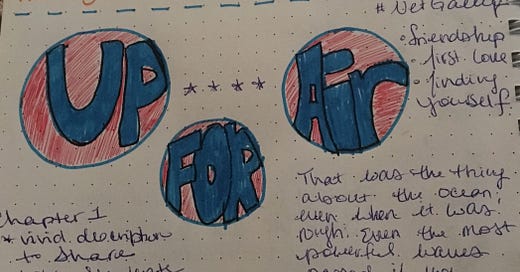 # NetGalley
UP
* * * *
Air
FOR
• friendship
• first love
• finding
yourself
Chapter 1
* vivid description
to share
That was the thing
about the ocean;
even when it was
rough. Even the most
powerful waves
passed if you